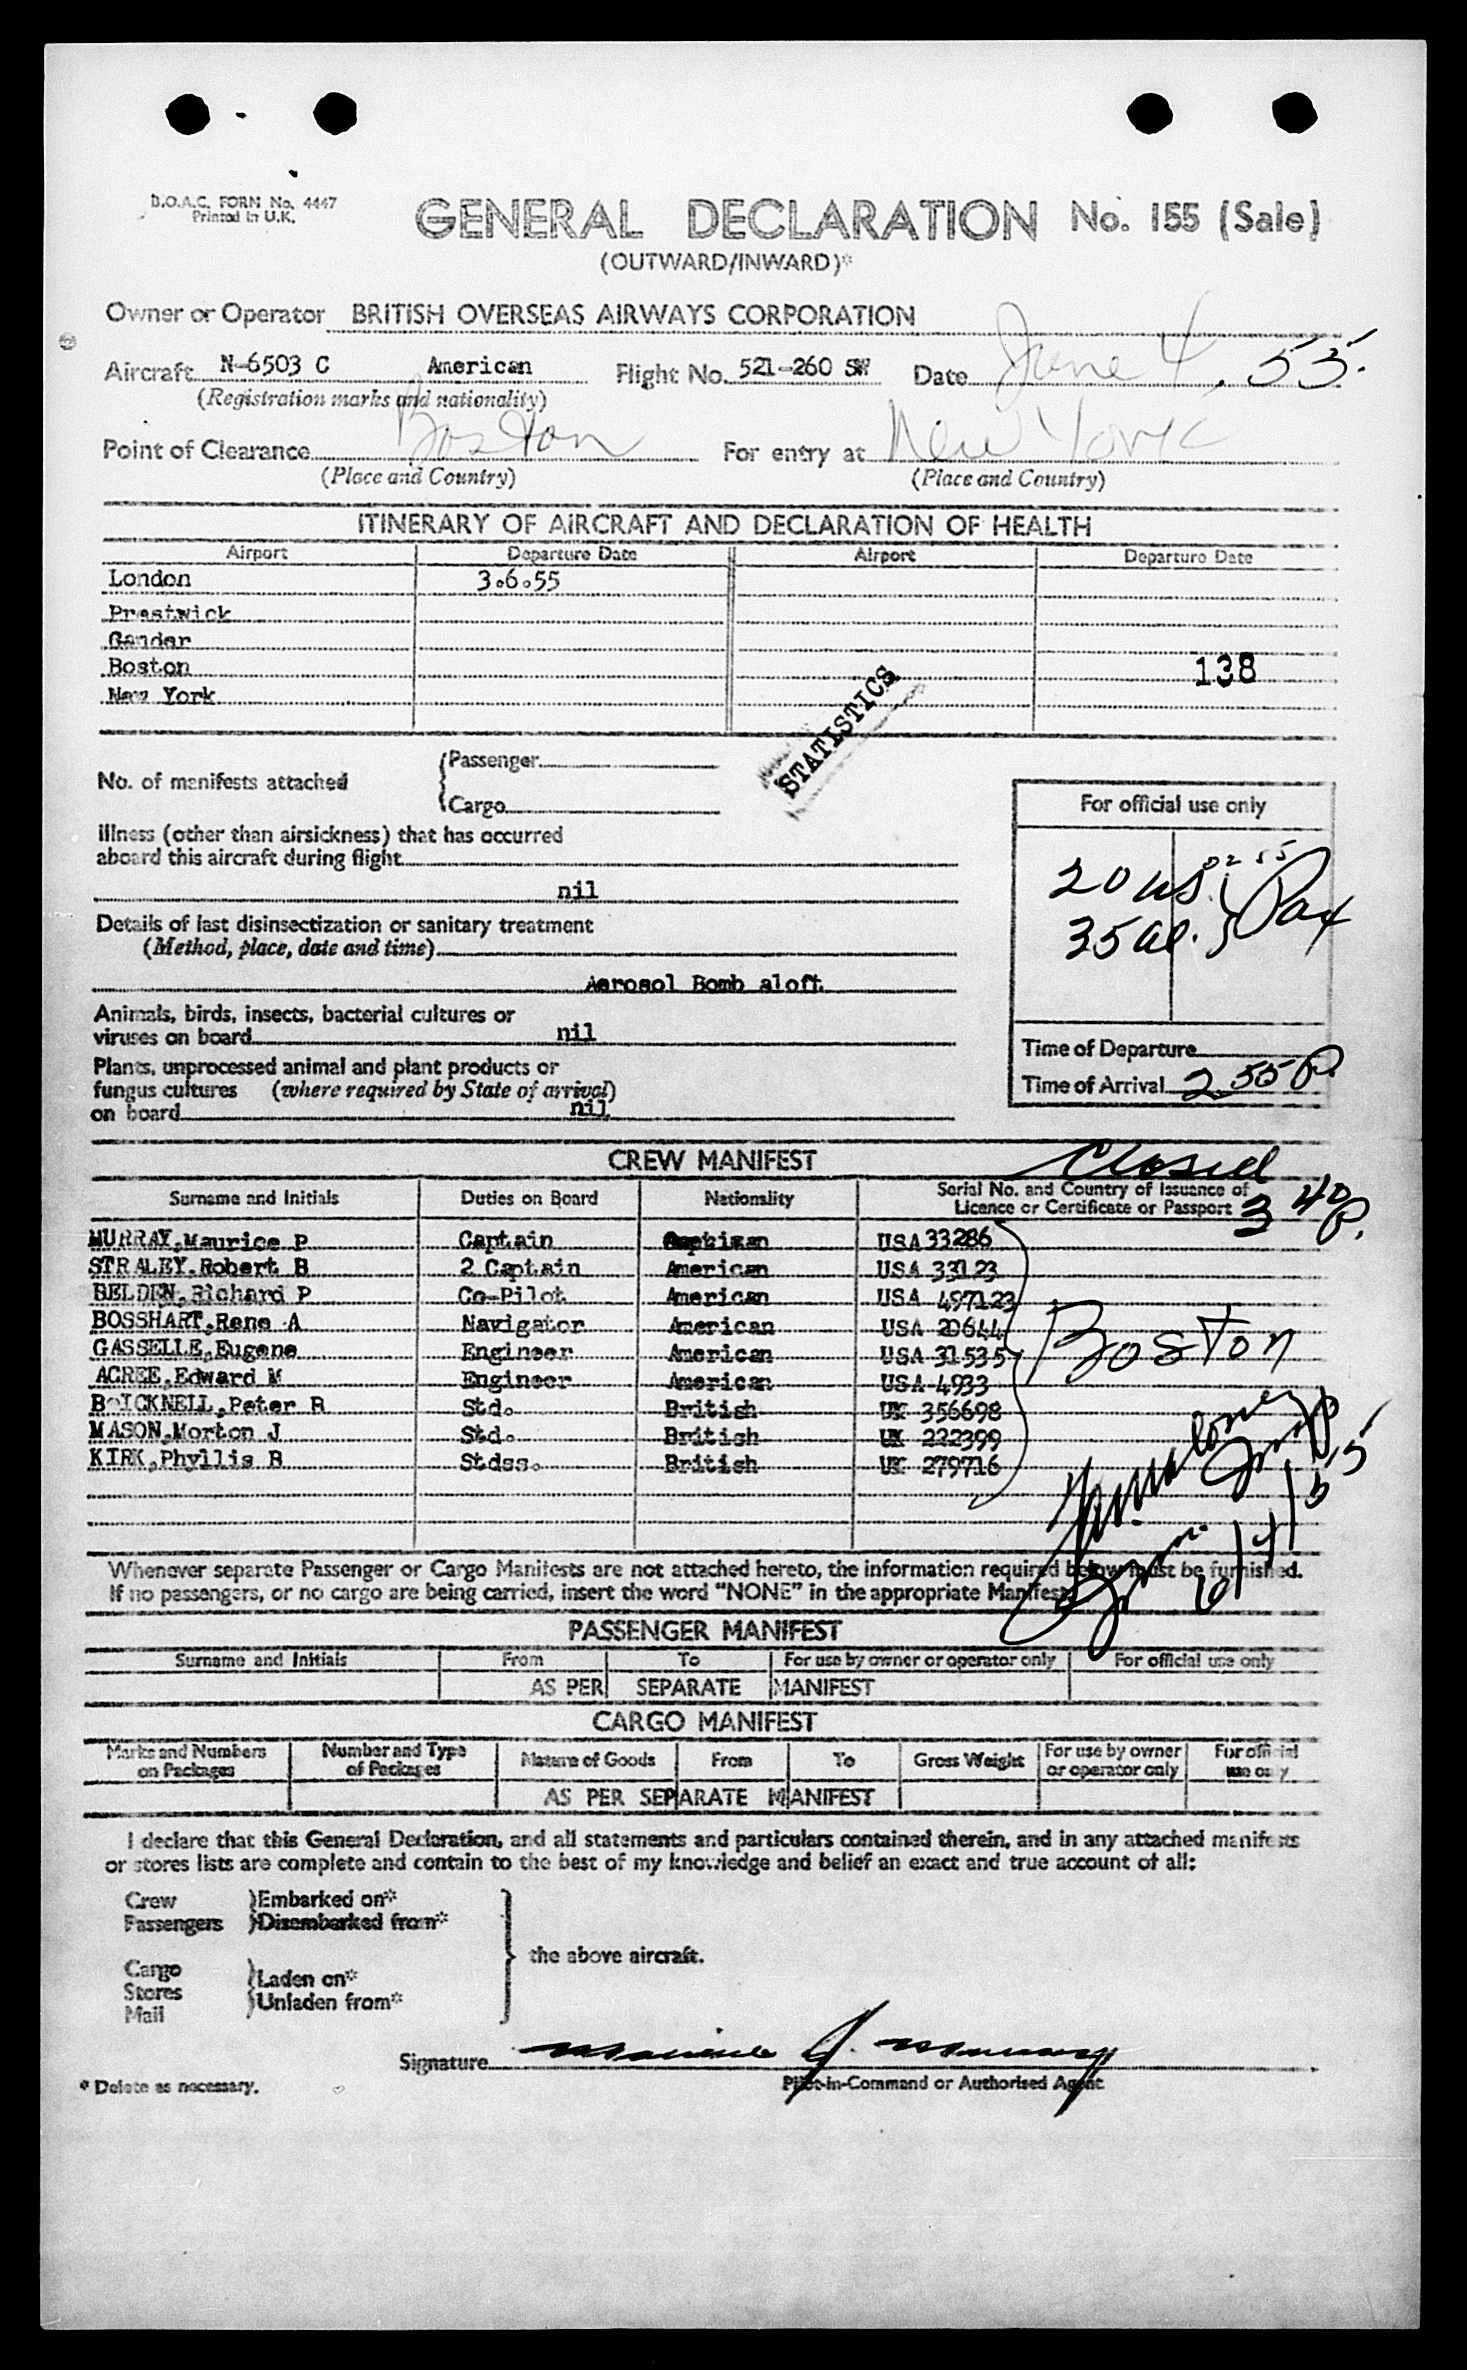 B.O.A.C. FORM No. 4447
Printed in U.K.
GENERAL DECLARATION No. 155 (Sale)
(OUTWARD/INWARD)*
Owner or Operator BRITISH OVERSEAS AIRWAYS CORPORATION
Aircraft N-6503 C American Flight No. 521-260 SW Date June 4, 55.
(Registration marks and nationality)
Point of Clearance Boston For entry at New York
(Place and Country) (Place and Country)
ITINERARY OF AIRCRAFT AND DECLARATION OF HEALTH
Airport Departure Date Airport Departure Date
London 3.6.55
Prestwick
Gander
Boston 138
New York
STATISTICS
No. of manifests attached {Passenger
{Cargo
For official use only
Illness (other than airsickness) that has occurred
aboard this aircraft during flight
nil
20 us. } Pax
35 al.
Details of last disinsectization or sanitary treatment
(Method, place, date and time)
Aerosol Bomb aloft
Animals, birds, insects, bacterial cultures or
viruses on board nil
Time of Departure
Plants, unprocessed animal and plant products or
fungus cultures (where required by State of arrival)
on board nil
Time of Arrival 2 55 P.
CREW MANIFEST Closed
3 40 P.
Surname and Initials Duties on Board Nationality Serial No. and Country of Issuance of
Licence or Certificate or Passport
MURRAY,Maurice P Captain USA 33286
STRALEY,Robert B 2 Captain American USA 33123
BELDEN,Richard P Co-Pilot American USA 497123
BOSSHART,Rene A Navigator American USA 20644
GASSELLE,Eugene Engineer American USA 31535
Boston
ACREE,Edward M Engineer American USA 4933
Peter R Std. British UK 356698
MASON,Morton J Std. British UK 222399
KIRK,Phyllis B Stdss. British UK 279716
6/4/55
Whenever separate Passenger or Cargo Manifests are not attached hereto, the information required below must be furnished.
If no passengers, or no cargo are being carried, insert the word "NONE" in the appropriate Manifest.
PASSENGER MANIFEST
Surname and Initials From To For use by owner or operator only For official use only
AS PER SEPARATE MANIFEST
CARGO MANIFEST
Marks and Numbers on Packages Number and Type of Packages Nature of Goods From To Gross Weight For use by owner or operator only For official use only
AS PER SEPARATE MANIFEST
I declare that this General Declaration, and all statements and particulars contained therein, and in any attached manifests
or stores lists are complete and contain to the best of my knowledge and belief an exact and true account of all:
Crew }Embarked on*
Passengers }Disembarked from*
the above aircraft.
Cargo
Stores }Laden on*
Mail }Unladen from*
Signature Maurice J. Murray
* Delete as necessary. Pilot-in-Command or Authorised Agent